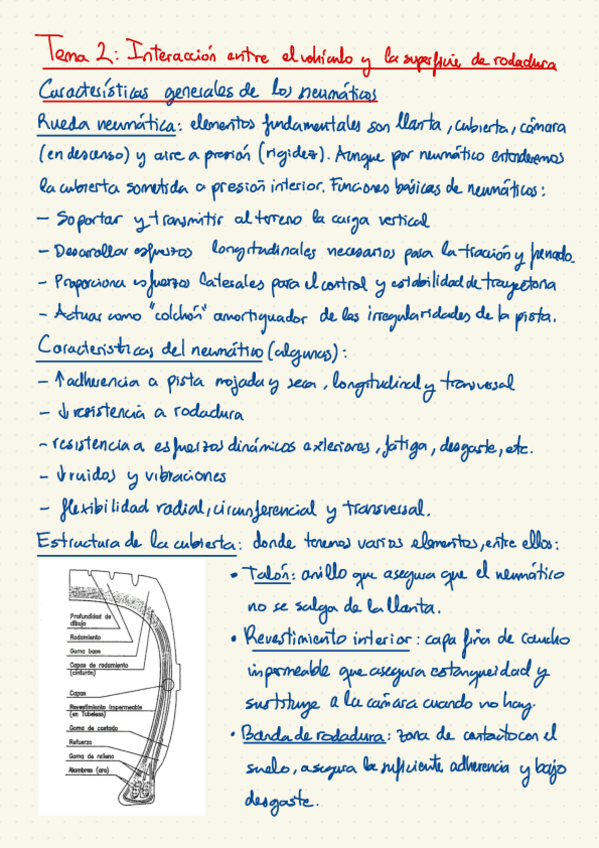 Tema 2: Interacción entre el vehículo y la superficie de rodadura
Características generales de los neumáticos
Rueda neumática: elementos fundamentales son llanta, cubierta, cámara
(en descenso) y aire a presión (rigidez). Aunque por neumático entenderemos
la cubierta sometida a presión interior. Funciones básicas de neumáticos:
- Soportar y transmitir al terreno la carga vertical
- Desarrollar esfuerzos longitudinales necesarios para la tracción y frenado.
- Proporciona esfuerzos laterales para el control y estabilidad de trayectoria
- Actuar como "colchón" amortiguador de las irregularidades de la pista.
Características del neumático (algunas):
- ↑adherencia a pista mojada y seca, longitudinal y transversal
- ↓resistencia a rodadura
- resistencia a esfuerzos dinámicos exteriores, fatiga, desgaste, etc.
- ↓ruidos y vibraciones
- flexibilidad radial, circunferencial y transversal.
Estructura de la cubierta: donde tenemos varios elementos, entre ellos:
Profundidad de
dibujo
Rodamiento
Goma base
Capas de rodamiento
(cinturte)
Capas
Revestimiento impermeable
(en Tubeless)
Goma de costado
Refuerzo
Goma de relleno
Alambres (aro)
• Talón: anillo que asegura que el neumático
no se salga de la llanta.
• Revestimiento interior: capa fina de caucho
impermeable que asegura estanqueidad y
sustituye a la cámara cuando no hay.
• Banda de rodadura: zona de contacto con el
suelo, asegura la suficiente adherencia y bajo
desgaste.